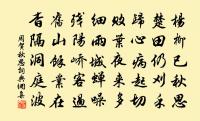 楊柳已秋思
楚田仍刈禾
歸心病起切
敗葉夜來多
細雨城蟬噪
殘陽嶠客過
舊山餘業在
杳隔洞庭波
周賀秋思詞典網集